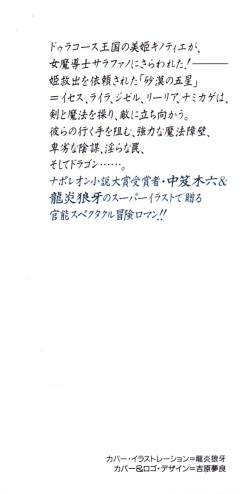 ドゥラコース王国の美姫キノティエが、
女魔導士サラファノにさらわれた!―――
姫救出を依頼された「砂漠の五星」
＝イセス、ライラ、ジゼル、リーリア、ナミカゲは、
剣と魔法を操り、敵に立ち向かう。
彼らの行く手を阻む、強力な魔法障壁、
卑劣な陰謀、淫らな罠、
そしてドラゴン……。
ナポレオン小説大賞受賞者・中笈木六&
龍炎狼牙のスーパーイラストで贈る
官能スペクタクル冒険ロマン!!
カバー・イラストレーション＝龍炎狼牙
カバー&ロゴ・デザイン＝吉原夢良